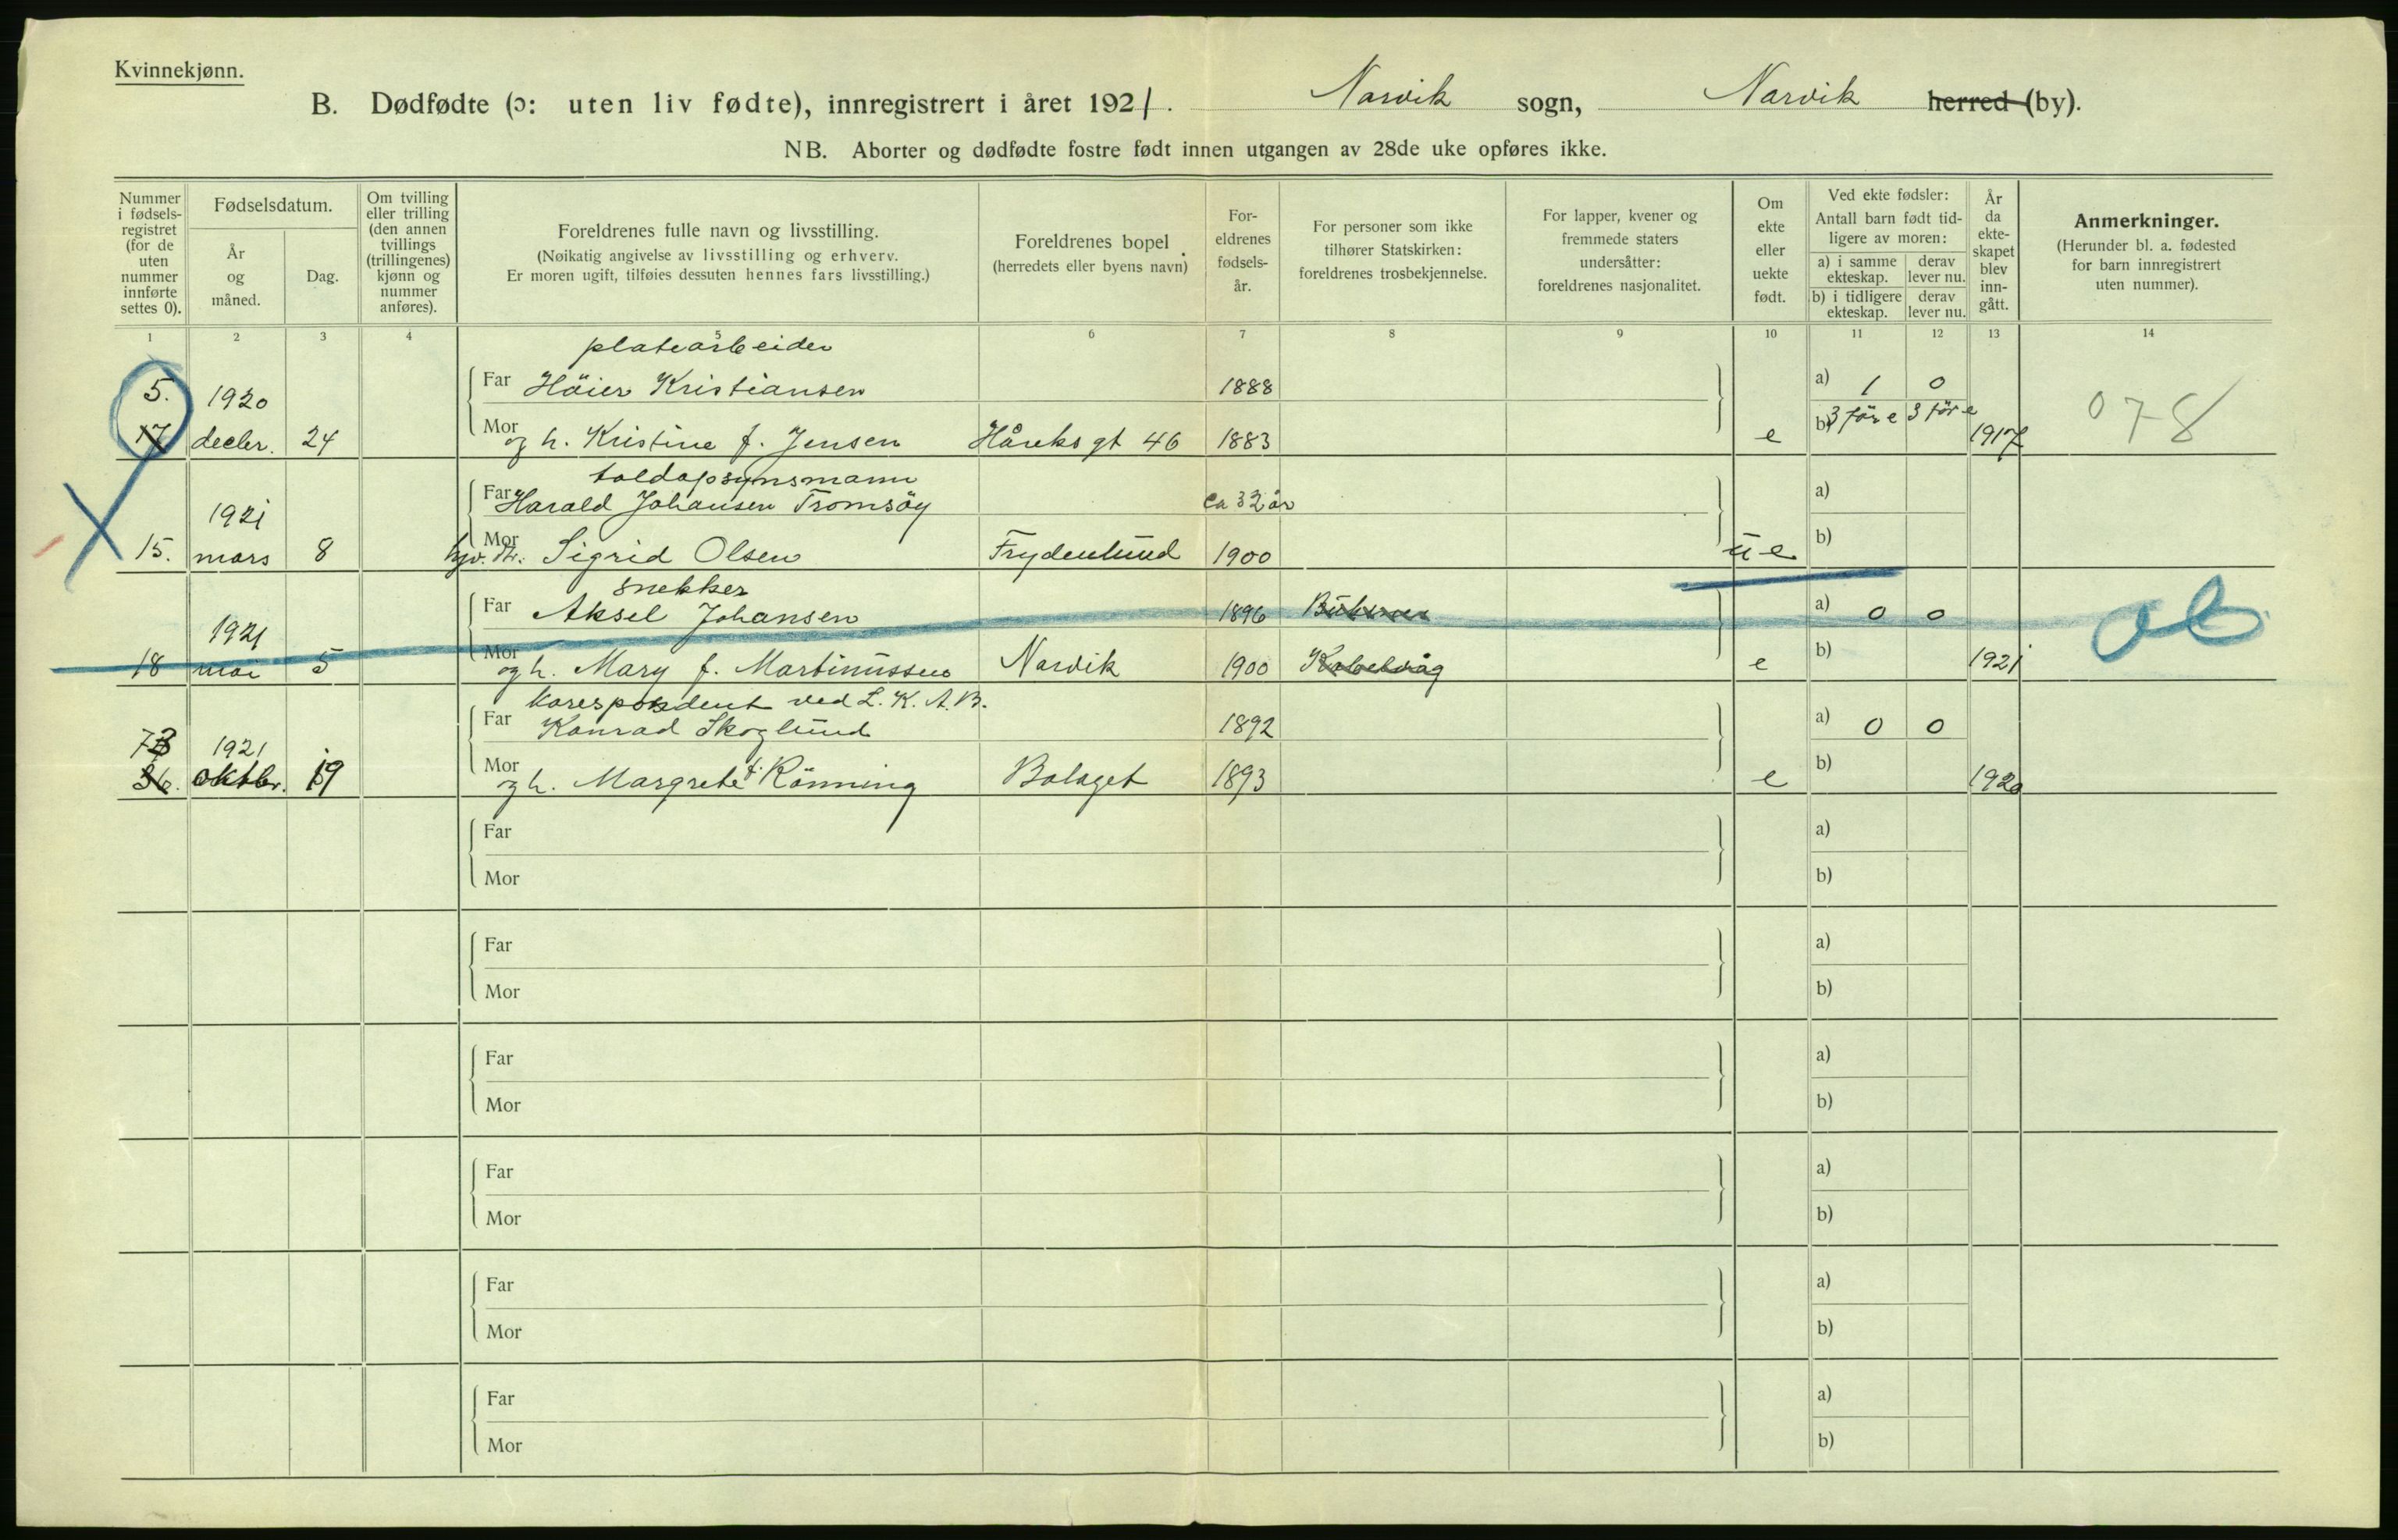 Kvinnekjønn.
B. Dødfødte (ɔ: uten liv fødte), innregistrert i året 1921. Narvik sogn, Narvik herred (by).
NB. Aborter og dødfødte fostre født innen utgangen av 28de uke opføres ikke.
Nummer
i fødsels-
registret
(for de
uten
nummer
innførte
settes 0).
Fødselsdatum.
År
og
måned.
Dag.
Om tvilling
eller trilling
(den annen
tvillings
(trillingenes)
kjønn og
nummer
anføres).
Foreldrenes fulle navn og livsstilling.
(Nøikatig angivelse av livsstilling og erhverv.
Er moren ugift, tilføies dessuten hennes fars livsstilling.)
Foreldrenes bopel
(herredets eller byens navn)
For-
eldrenes
fødsels-
år.
For personer som ikke
tilhører Statskirken:
foreldrenes trosbekjennelse.
For lapper, kvener og
fremmede staters
undersåtter:
foreldrenes nasjonalitet.
Om
ekte
eller
uekte
født.
Ved ekte fødsler:
Antall barn født tid-
ligere av moren:
a) i samme
ekteskap.
derav
lever nu.
b) i tidligere
ekteskap.
derav
lever nu.
År
da
ekte-
skapet
blev
inn-
gått.
Anmerkninger.
(Herunder bl. a. fødested
for barn innregistrert
uten nummer).
1 2 3 4 5 6 7 8 9 10 11 12 13 14
platearbeider
5. 1920 Far Höier Kristiansen 1888 a) 1 0
17 decbr. 24 Mor og h. Kristine f. Jensen Håreks gt 46 1883 e b) 3 före 3 före 1917 078
toldopsynsmann
1921 Far Harald Johansen Tromsöy ca 32 år a)
15. mars 8 Mor Sigrid Olsen Frydenlund 1900 ue b)
snekker
1921 Far Aksel Johansen 1896 a) 0 0
18 mai 5 Mor og h. Mary f. Martinussen Narvik 1900 Kabelvåg e b) 1921
korespondent ved L.K.A.B.
73 1921 Far Konrad Skoglund 1892 a) 0 0
36. oktbr. 19 Mor og h. Margrete f. Rönning Bolaget 1893 e b) 1920
Far a)
Mor b)
Far a)
Mor b)
Far a)
Mor b)
Far a)
Mor b)
Far a)
Mor b)
Far a)
Mor b)